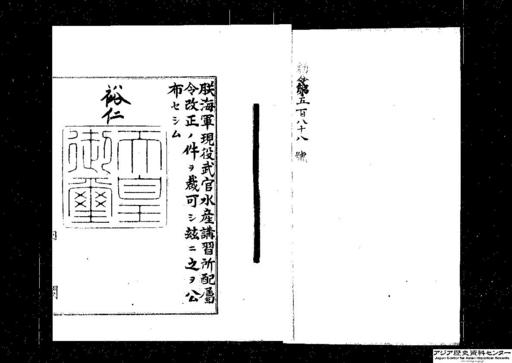 勅令第五百八十八號
朕海軍現役武官水産講習所配屬
令改正ノ件ヲ裁可シ玆ニ之ヲ公
布セシム
裕仁
天皇
御璽
内閣
アジア歴史資料センター
Japan Center for Asian Historical Records